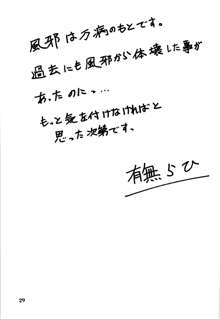 風邪は万病のもとです。
過去にも風邪から体壊した事が
あったのに、…
もっと気を付けなければと
思った次第です。
有無らひ
29